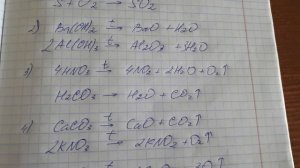 S + O₂ → SO₂
2) Ba(OH)₂ →t BaO + H₂O
2Al(OH)₃ →t Al₂O₃ + 3H₂O
3) 4HNO₃ →t 4NO₂ + 2H₂O + O₂↑
H₂CO₃ → H₂O + CO₂↑
4) CaCO₃ →t CaO + CO₂↑
2KNO₃ →t 2KNO₂ + O₂↑